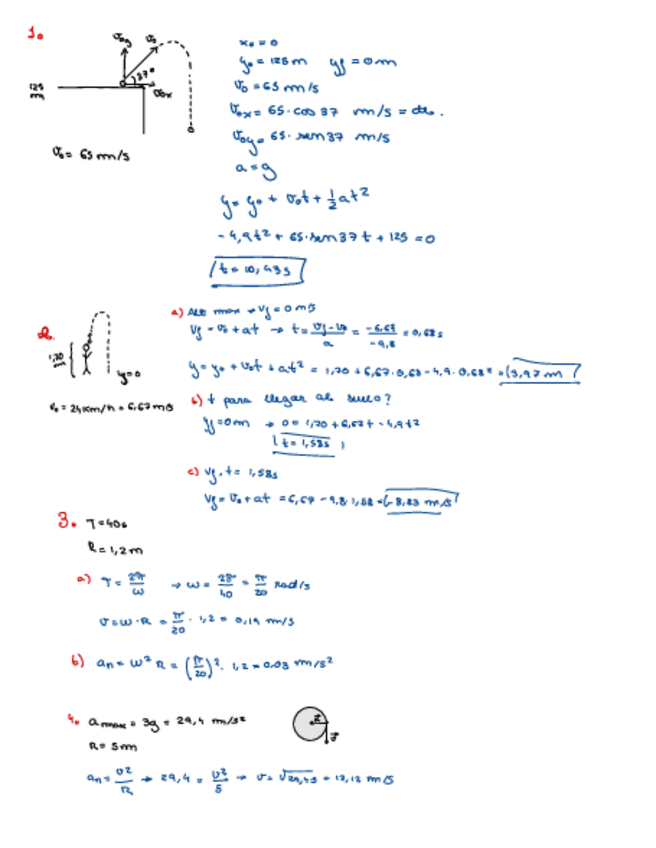 1.
v₀y v₀
37°
v₀x
125 m
v₀ = 65 m/s
x₀ = 0
y₀ = 125 m yf = 0 m
v₀ = 65 m/s
v₀x = 65 · cos 37 m/s = cte.
v₀y = 65 · sen 37 m/s
a = g
y = y₀ + v₀t + ½ at²
- 4,9t² + 65 · sen 37 t + 125 = 0
t = 10,43 s
2.
1,70 m
y = 0
v₀ = 24 km/h = 6,67 m/s
a) Alt max → vf = 0 m/s
vf = v₀ + at → t = (vf - v₀)/a = -6,67/-9,8 = 0,68 s
y = y₀ + v₀t + at² = 1,70 + 6,67 · 0,68 - 4,9 · 0,68² = 3,97 m
b) t para llegar al suelo?
yf = 0 m → 0 = 1,70 + 6,67t - 4,9t²
t = 1,58 s
c) vf, t = 1,58 s
vf = v₀ + at = 6,67 - 9,8 · 1,58 = -8,83 m/s
3. T = 40 s
R = 1,2 m
a) T = 2π/ω → ω = 2π/40 = π/20 rad/s
v = ω · R = π/20 · 1,2 = 0,19 m/s
b) an = ω² R = (π/20)² · 1,2 = 0.03 m/s²
4. a max = 3g = 29,4 m/s²
R = 5 m
an = v²/R → 29,4 = v²/5 → v = √29,4·5 = 12,12 m/s